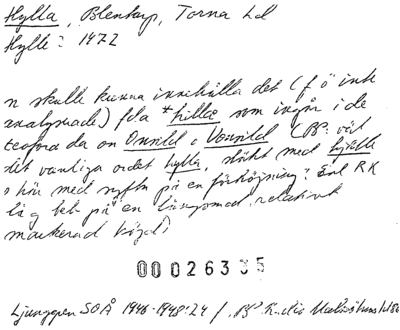 Hylla, Blentarp, Torna hd
Hylle: 1472
n skulle kunna innehålla det (f ö inte
analyserade) fda *hille som ingår i de
teoforda da on Onsild o Vonsild (BP: väl
det vanliga ordet hylla, släkt med hjälle
s här med syftn på en förhöjning? Enl RK
låg beb på en långsmal, relativt
markerad höjd)
00026335
Ljunggren SOÅ 1946-1948:24 /